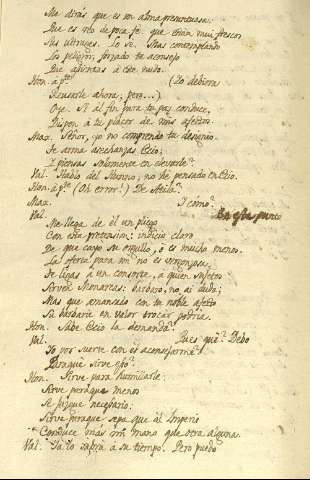 Me dirás que es un alma presuntuosa:
Que es reo de poca fé: que están mui frescos
Sus ultrages. Lo sé. Mas contemplando
Los peligros, forzado te aconsejo
Que asientas à este nudo.
Hon. à pte. (Lo debiera
Reusarle ahora; pero...)
Oye. Si al fin para tu paz conduce,
Dispon à tu placer de mis afectos.
Max. Señor, yo no comprendo tu designio.
Se arma asechanzas Ecio;
I piensas solamente en elevarle?
Val. Hablo del Hunno; no he pensado en Ecio.
Hon. à pte. (Oh error!) De Atila?
Max. I cómo?
Val. En este punto
Me llega de él un pliego
Con esta pretension: indicio claro
De que cayo su orgullo, o es mucho menos.
La oferta para mi no es vergonzosa.
Te ligas à un consorte, à quien sujetos
Sirven Monarcas: barbaro, no ai duda;
Mas que amansado con tu noble afecto
Su barbarie en valor trocar podria.
Hon. Sabe Ecio la demanda?
Val. Pues qué? Debo
Yo por suerte con él aconsejarme?
Paraque sirve esto?
Hon. Sirve para humillarle:
Sirve paraque menos
Se fixque necesario:
Sirve paraque sepa que al Imperio
Conduce mas mano que otra alguna.
Val. Ya lo sabrá à su tiempo. Pero puedo